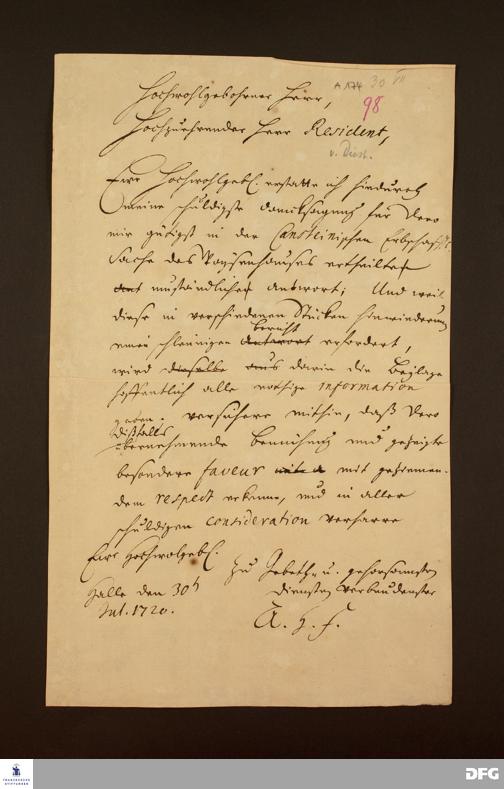 A 174 30 VII
98
Hochwohlgebohrner Herr,
Hochzuehrender Herr Resident,
v. Diest.
Ewr Hochwohlgebl. erstatte ich hiedurch
meine schuldigste dancksagung für Dero
mir gütigst in der Cansteinischen Erbschaffts
Sache des Waysenhauses ertheilte
umständliche antwort; Und weil
diese in verschiedenen Stücken hinwiederum
einen schleunigen bericht erfordert,
wird dieselbe aus darin die Beylage
hoffentlich alle nöthige information
geben. versichere mithin, daß Dero
dißfalls
übernehmende Bemühung und gezeigte
besondere faveur mit geziemen-
dem respect erkenne, und in aller
schuldigen consideration verharre
Ewr Hochwolgebl.
Halle den 30
Jul. 1720.
zu Gebeth u. gehorsamsten
Diensten verbundenster
A. H. F.
FRANCKESCHE
STIFTUNGEN
DFG